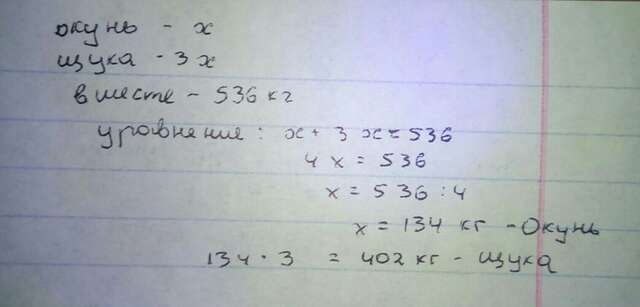 окунь - x
щука - 3x
вместе - 536 кг
уровнение: x + 3x = 536
4x = 536
x = 536 : 4
x = 134 кг - Окунь
134 · 3 = 402 кг - щука